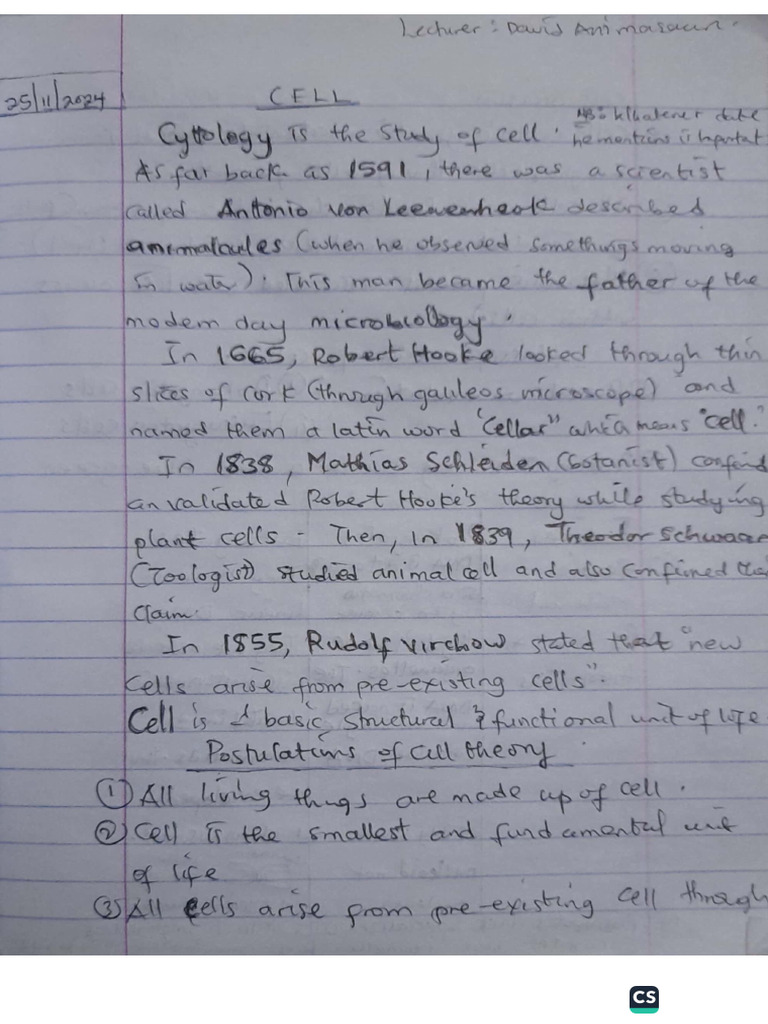 Lecturer : David Animasaun.
25/11/2024
CELL
NB: Whatener date
Cyttology is the study of cell. he mentions is Important
As far back as 1591, there was a scientist
called Antonio von Leewenheok described
animalcules (when he observed somethings moving
in water). This man became the father of the
modern day microbiology.
In 1665, Robert Hooke looked through thin
slices of cork (through galileos microscope) and
named them a latin word "Cellar" which means "cell."
In 1838, Mathias Schleiden (botanist) confind
an validated Robert Hooke's theory while studying
plant cells - Then, in 1839, Theodor Schwaan
(Zoologist) studied animal cell and also confined the
claim.
In 1855, Rudolf Virchow stated that "new
cells arise from pre-existing cells".
Cell is d basic structural & functional unit of life
Postulations of cell theory
① All living things are made up of cell.
② Cell is the smallest and fundamental unit
of life
③ All cells arise from pre-existing cell through
CS